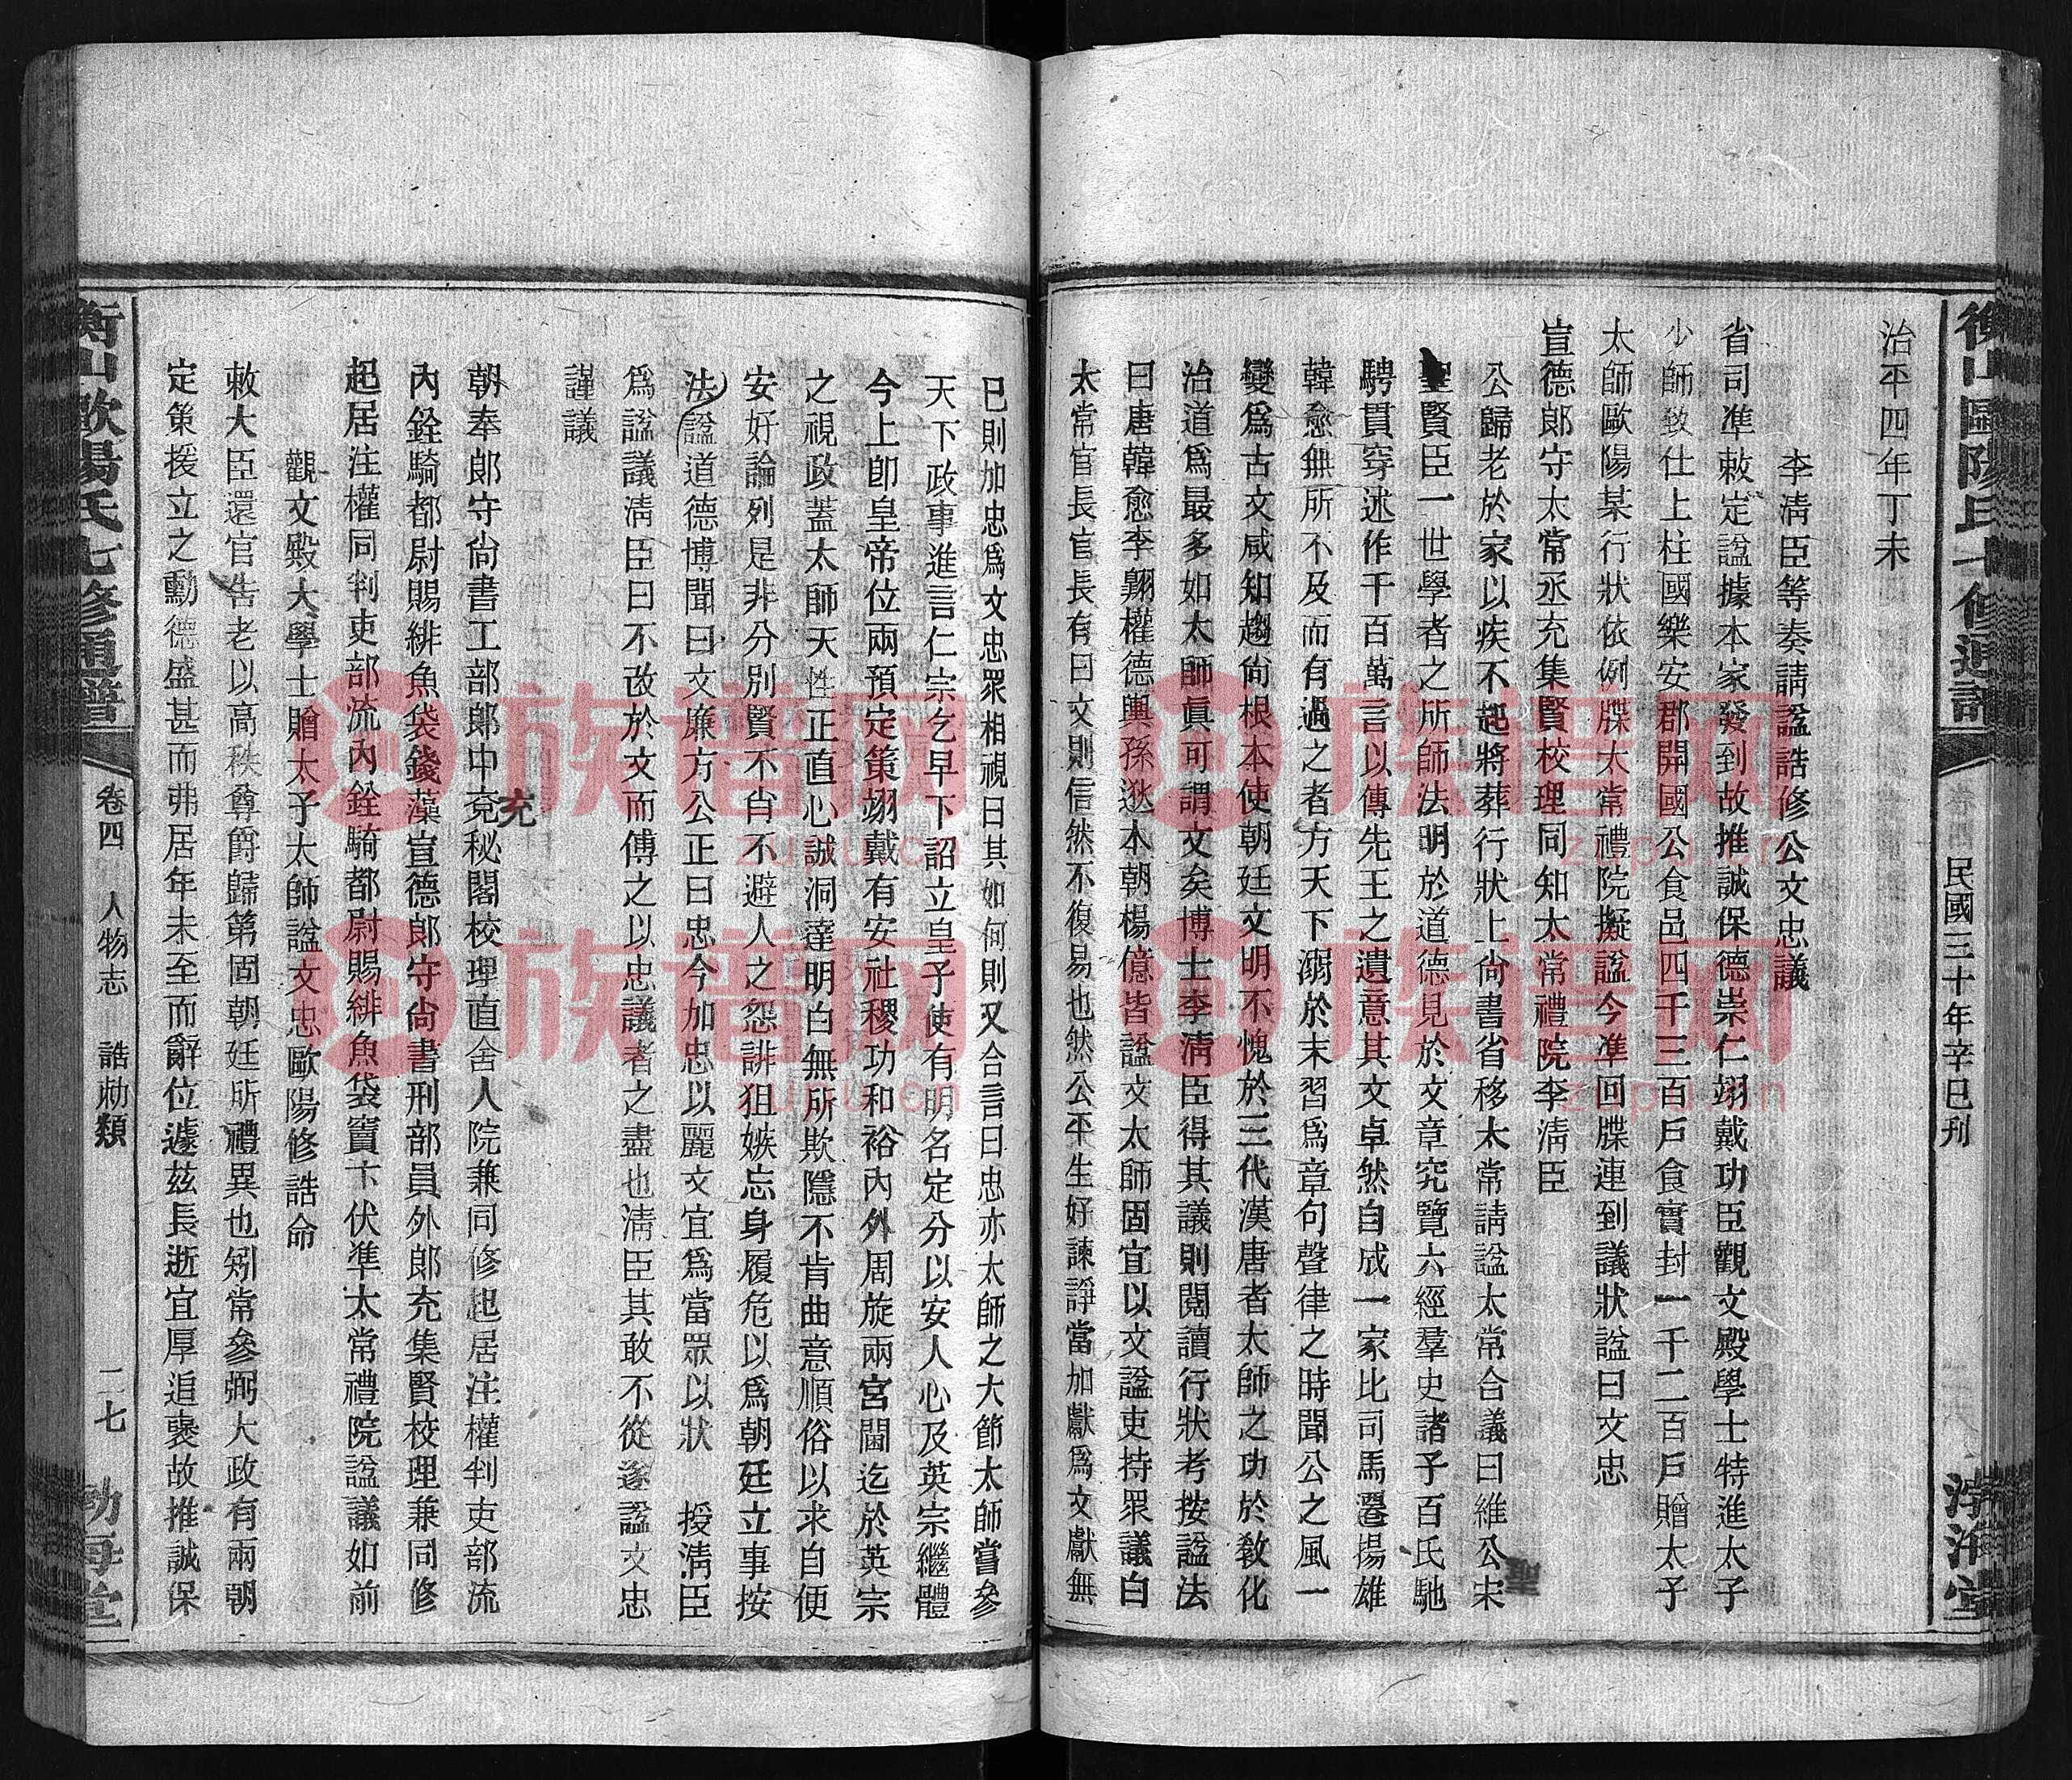 民國三十年辛巳刊
治平四年丁未
李清臣等奏請諡誥修公文忠議
省司準敕定諡據本家發到故推誠保德崇仁翊戴功臣觀文殿學士特進太子
少師致仕上柱國樂安郡開國公食邑四千三百戶食實封一千二百戶贈太子
太師歐陽某行狀依例牒太常禮院擬諡今準回牒連到議狀諡曰文忠
宣德郎守太常丞充集賢校理同知太常禮院李清臣
公歸老於家以疾不起將葬行狀上尙書省移太常請諡太常合議曰維公宋
聖賢臣一世學者之所師法明於道德見於文章究覽六經羣史諸子百氏馳
騁貫穿述作千百萬言以傳先王之遺意其文卓然自成一家比司馬遷揚雄
韓愈無所不及而有過之者方天下溺於末習爲章句聲律之時聞公之風一
變爲古文咸知趨尙根本使朝廷文明不愧於三代漢唐者太師之功於敎化
治道爲最多如太師眞可謂文矣博士李淸臣得其議則閱讀行狀考按諡法
曰唐韓愈李翺權德輿孫逖本朝楊億皆諡文太師固宜以文諡吏持眾議白
太常官長官長有曰文則信然不復易也然公平生好諫諍當加獻爲文獻無
已則加忠爲文忠眾相視曰其如何則又合言曰忠亦太師之大節太師嘗參
天下政事進言仁宗乞早下詔立皇子使有明名定分以安人心及英宗繼體
今上卽皇帝位兩預定策翊戴有安社稷功和裕內外周旋兩宮閫迄於英宗
之視政蓋太師天性正直心誠洞達明白無所欺隱不肯曲意順俗以求自便
安好論列是非分別賢不肖不避人之怨誹狙嫉忘身履危以爲朝廷立事按
法諡道德博聞曰文廉方公正曰忠今加忠以麗文宜爲當眾以狀　授淸臣
爲諡議淸臣曰不改於文而傅之以忠議者之盡也淸臣其敢不從遂諡文忠
謹議
朝奉郎守尙書工部郎中充秘閣校理直舍人院兼同修起居注權判吏部流
充
內銓騎都尉賜緋魚袋錢藻宣德郎守尙書刑部員外郎充集賢校理兼同修
起居注權同判吏部流內銓騎都尉賜緋魚袋竇卞伏準太常禮院諡議如前
觀文殿大學士贈太子太師諡文忠歐陽修誥命
敕大臣還官告老以高秩尊爵歸第固朝廷所禮異也矧常參弼大政有兩朝
定策援立之勳德盛甚而弗居年未至而辭位遽茲長逝宜厚追褒故推誠保
衡山歐陽氏七修通譜
卷四
人物志
誥勑類
二七